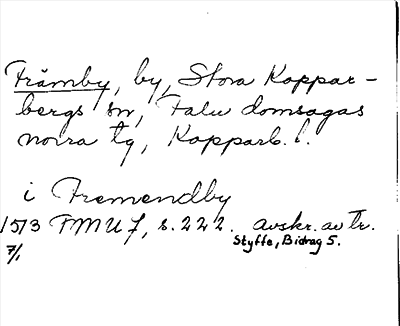 Främby, by, Stora Koppar-
bergs sn, Falu domsagas
norra tg, Kopparb. l.
i Fremendby
1513 FMU 7, s. 222. avskr. av tr.
7/1 Styffe, Bidrag 5.